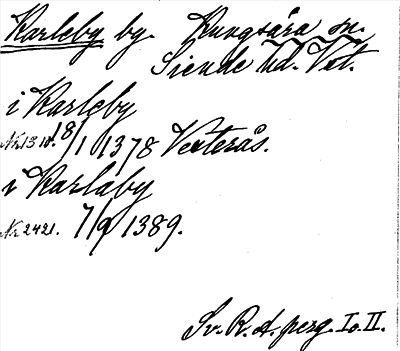 Karleby by. Kungsåra sn.
Siende hd. Vstl.
i Karleby
Nr. 1310. 18/1 1378 Vesterås.
i Karlaby
Nr. 2421. 7/9 1389.
Sv. R. A. perg. I o. II.